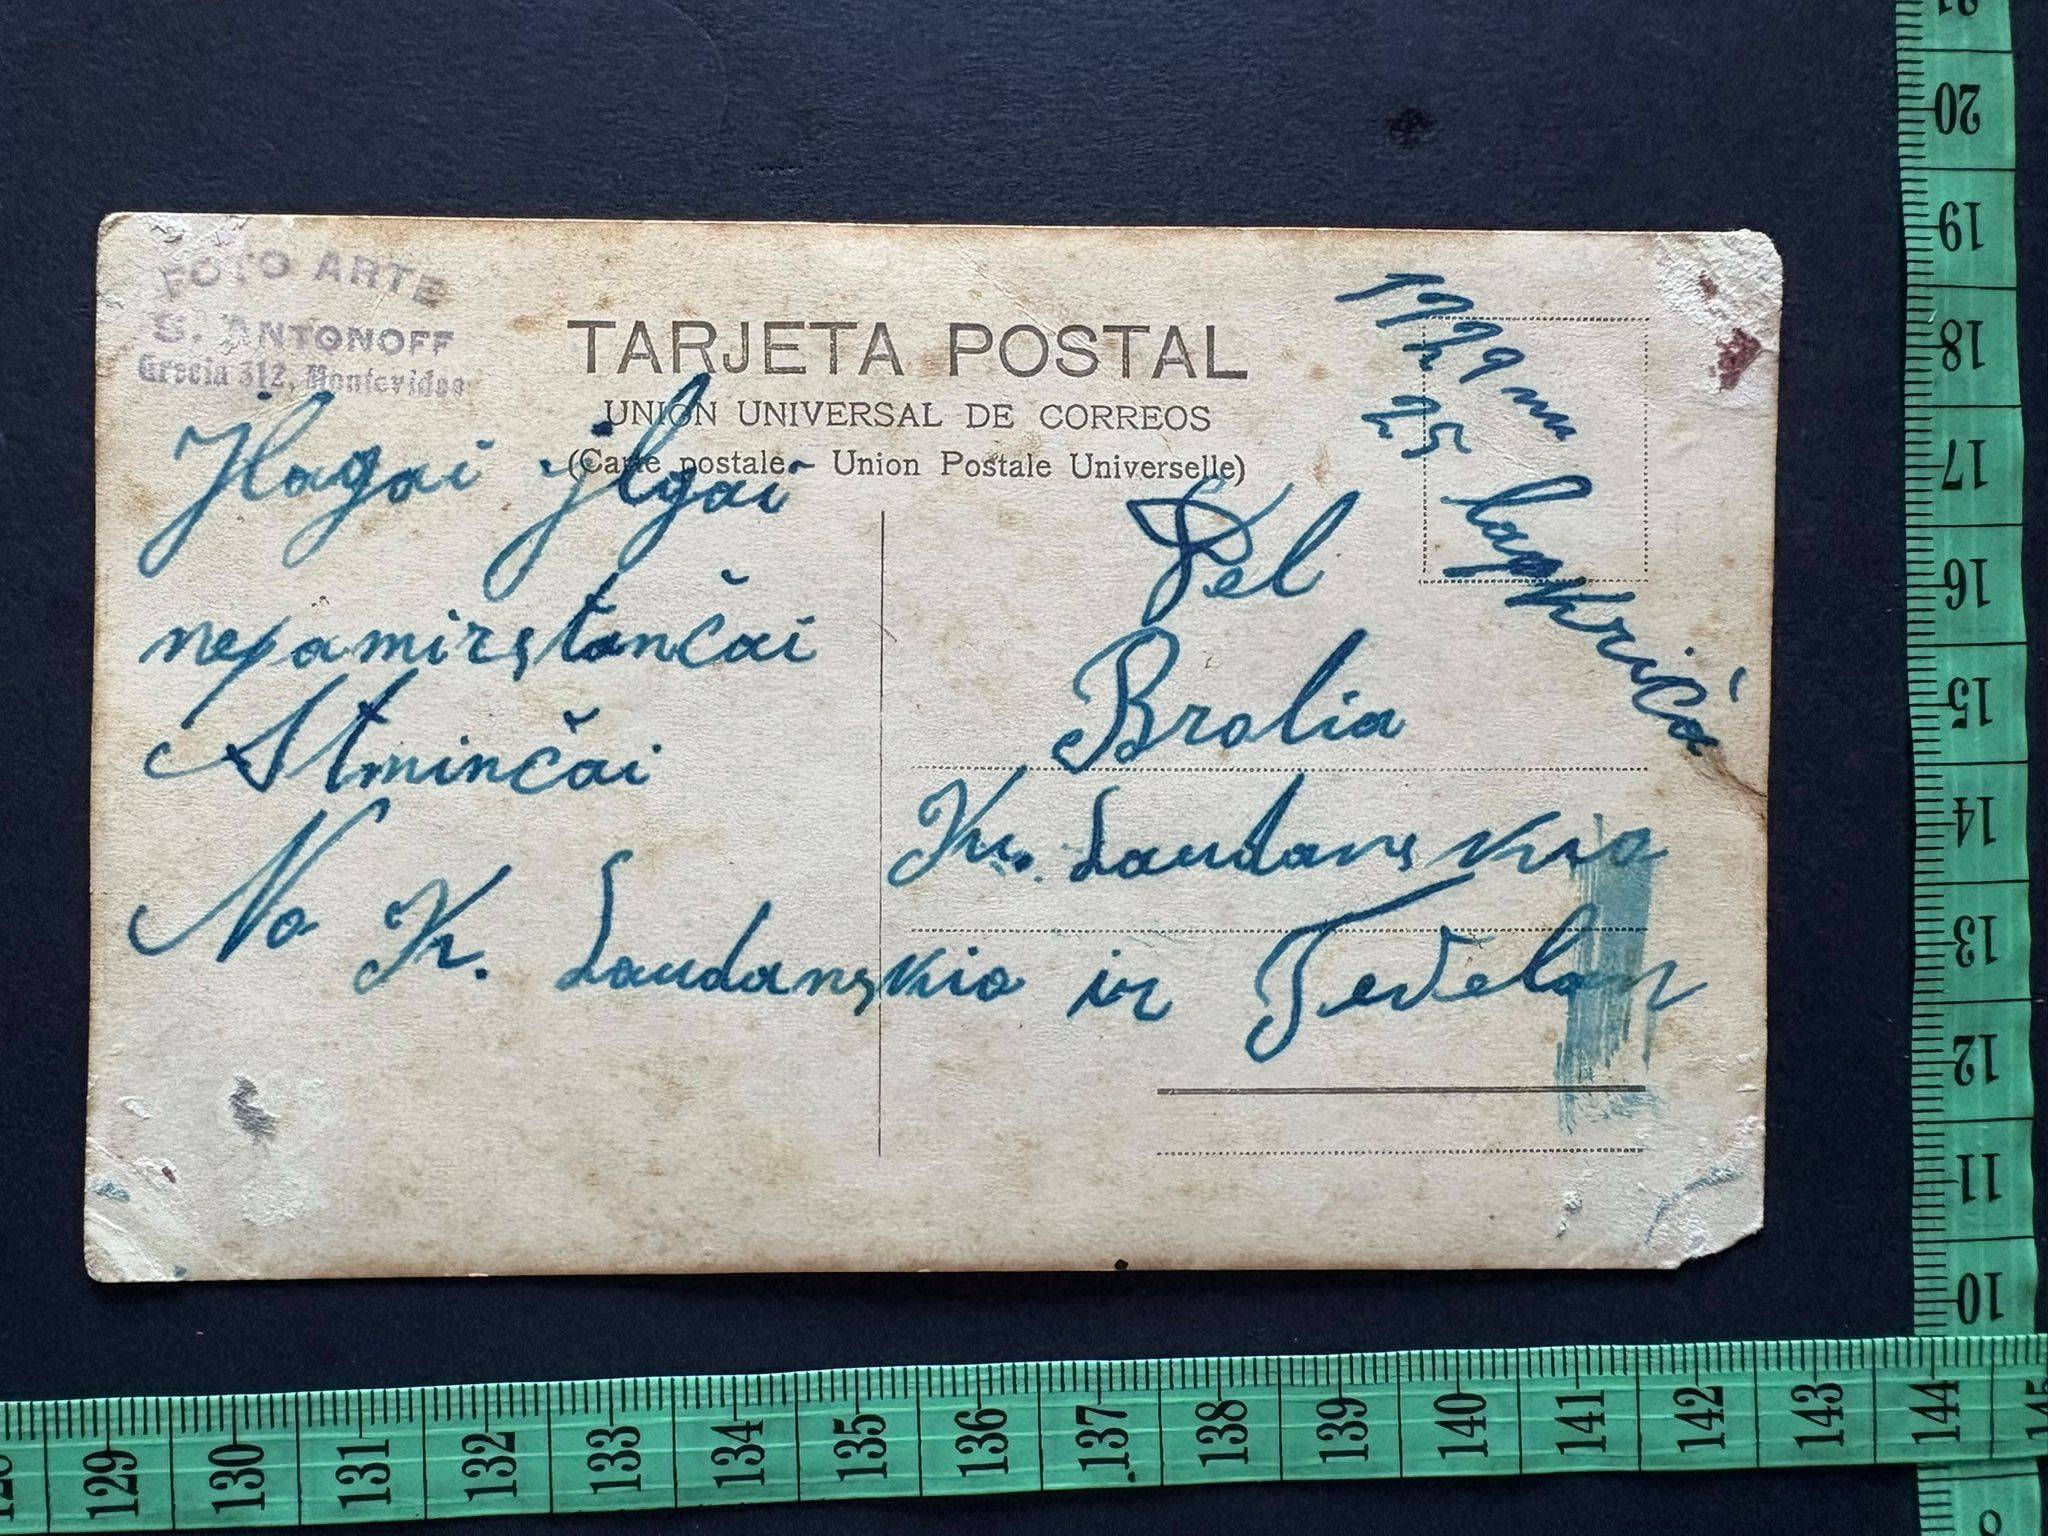 FOTO ARTE
S. ANTONOFF
Grecia 312, Montevideo
TARJETA POSTAL
UNION UNIVERSAL DE CORREOS
(Carte postale - Union Postale Universelle)
1929 m
25 lapkričo
Jlagai jlgai
nepamirstančai
Atminčai
No Kr. Laudanskio ir Tedelon
Del
Brolia
Kr. Laudanskio
21
20
19
18
17
16
15
14
13
12
11
10
9
128 129 130 131 132 133 134 135 136 137 138 139 140 141 142 143 144 145